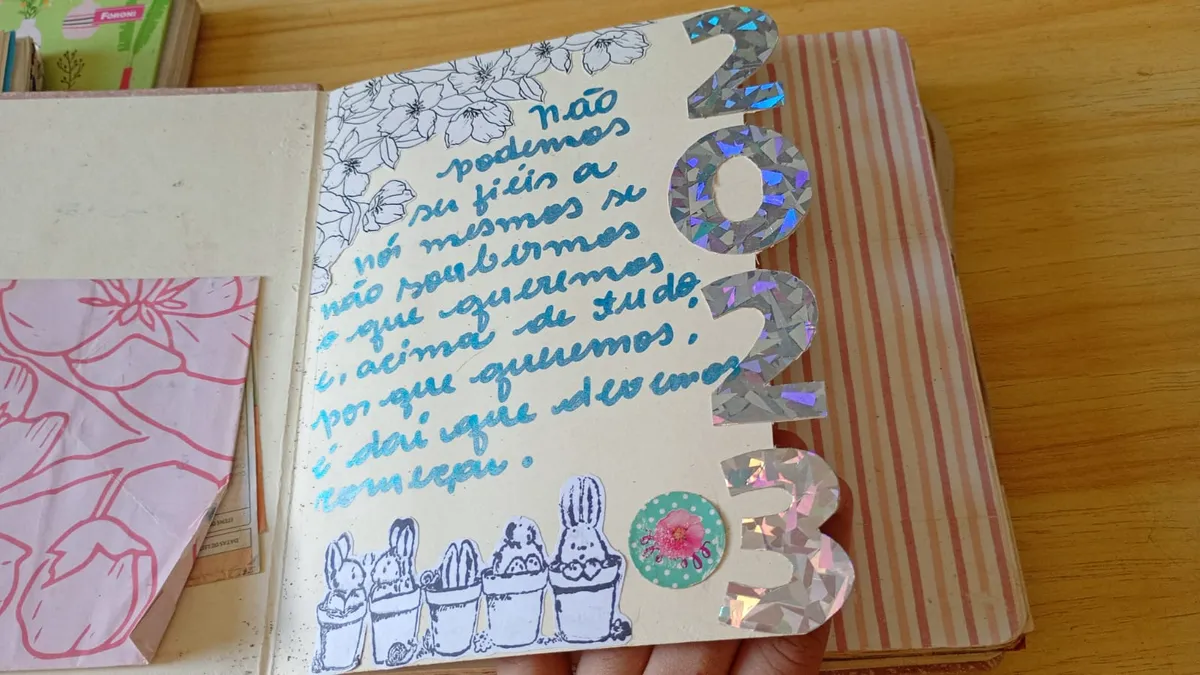 FORONI
2023
Não
podemos
ser fiéis a
nós mesmos se
não soubermos
o que queremos
e, acima de tudo,
por que queremos,
é daí que devemos
começar.